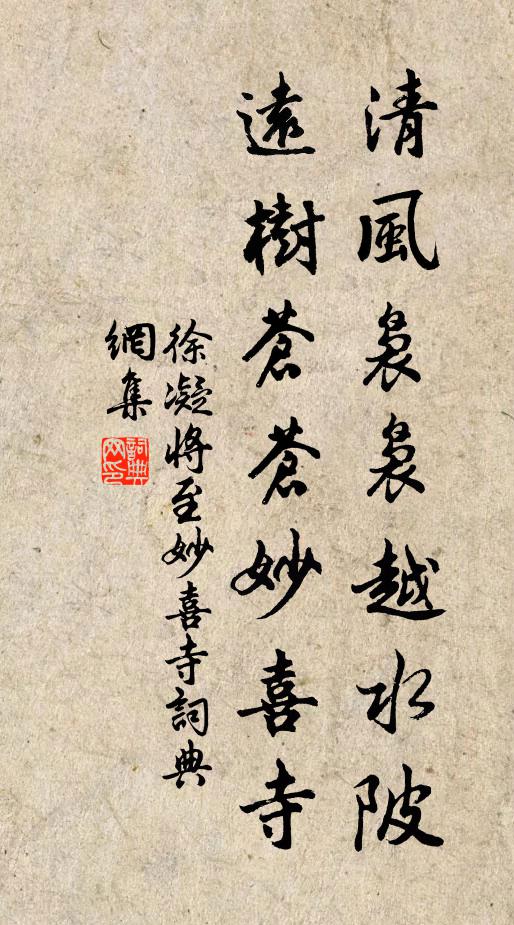 清風裊裊越水陂
遠樹蒼蒼妙喜寺
徐凝將至妙喜寺詞典
網集
詞典網印